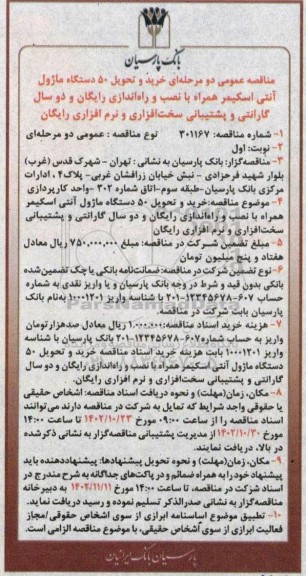 بانک پارسیان
مناقصه عمومی دو مرحله‌ای خرید و تحویل ۵۰ دستگاه ماژول
آنتی اسکیمر همراه با نصب و راه‌اندازی رایگان و دو سال
گارانتی و پشتیبانی سخت‌افزاری و نرم افزاری رایگان
۱- شماره مناقصه: ۳۰۱۱۶۷ نوع مناقصه : عمومی دو مرحله‌ای
۲- نوبت: اول
۳- مناقصه‌گزار: بانک پارسیان به نشانی : تهران - شهرک قدس (غرب)
بلوار شهید فرحزادی - نبش خیابان زرافشان غربی- پلاک۴ ، ادارات
مرکزی بانک پارسیان-طبقه سوم-اتاق شماره ۳۰۲ -واحد کارپردازی
۴- موضوع مناقصه:خرید و تحویل ۵۰ دستگاه ماژول آنتی اسکیمر
همراه با نصب و راه‌اندازی رایگان و دو سال گارانتی و پشتیبانی
سخت‌افزاری و نرم افزاری رایگان
۵- مبلغ تضمین شـرکت در مناقصه: مبلغ ۷۵۰,۰۰۰,۰۰۰ ریال معادل
هفتاد و پنج میلیون تومان
۶- نوع تضمین شرکت در مناقصه:ضمانت‌نامه بانکی یا چک تضمین‌شده
بانکی بدون قید و شرط در وجه بانک پارسیان و یا واریز نقدی به شماره
حساب ۶۰۷-۱۲۳۴۵۶۷۸-۲۰۱ با شناسه واریز ۱۰۰۰۱۲۰۱ به‌نام بانک
پارسیان بابت شرکت در مناقصه.
۷- هزینه خرید اسناد مناقصه:۱,۰۰۰,۰۰۰ ریال معادل صدهزارتومان
واریز به حساب شماره۶۰۷-۱۲۳۴۵۶۷۸-۲۰۱ بانک پارسیان با شناسه
واریز ۱۰۰۰۱۲۰۱ بابت هزینه خرید اسناد مناقصه خرید و تحویل ۵۰
دستگاه ماژول آنتی اسکیمر همراه با نصب و راه‌اندازی رایگان و دو سال
گارانتی و پشتیبانی سخت‌افزاری و نرم افزاری رایگان.
۸- مکان، زمان(مهلت) و نحوه دریافت اسناد مناقصه: اشخاص حقیقی
یا حقوقی واجد شرایط که تمایل به شرکت در مناقصه دارند می‌توانند
اسناد مناقصه را از ساعت ۰۹:۰۰ مورخ ۱۴۰۲/۱۰/۲۳ تا ساعت ۱۴:۰۰
مورخ ۱۴۰۲/۱۰/۳۰ از مدیریت پشتیبانی مناقصه‌گزار به نشانی ذکرشده
در بالا، دریافت نمایند.
۹- مکان، زمان(مهلت) و نحوه تحویل پیشنهادها: پیشنهاددهنده باید
پیشنهاد خود را به همراه ضمائم و در پاکت‌های جداگانه به شرح مندرج در
اسناد شرکت در مناقصه، تا ساعت ۱۴:۰۰ مورخ ۱۴۰۲/۱۱/۱۱ به دبیرخانه
مناقصه‌گزار به نشانی صدرالذکر تسلیم نموده و رسید دریافت نماید.
۱۰- تطبیق موضوع اساسنامه ابرازی از سوی اشخاص حقوقی /مجاز
فعالیت ابرازی از سوی اشخاص حقیقی، با موضوع مناقصه الزامی است.
پارسیان بانک ایرانیان